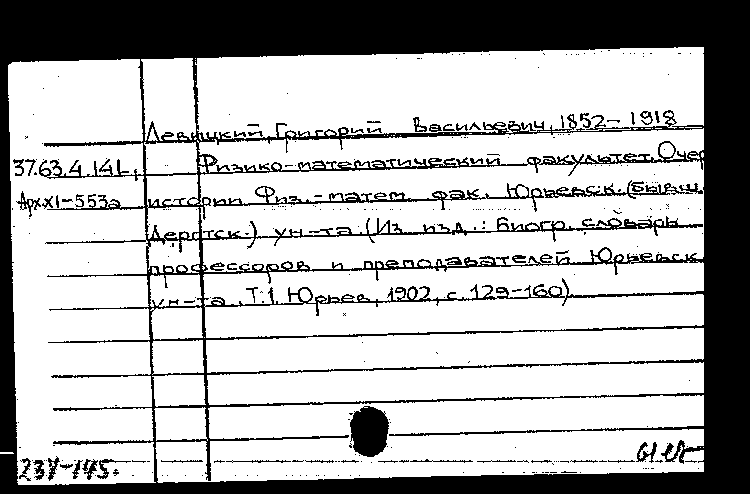 Левицкий, Григорий Васильевич, 1852-1918
37.63.4.141, Физико-математический факультет. Очер
Арх.XI-553а истории Физ.-матем. фак. Юрьевск. (бывш.
Дерптск.) ун-та. (Из изд.: Биогр. словарь
профессоров и преподавателей Юрьевск.
ун-та. Т.1. Юрьев, 1902, с. 129-160)